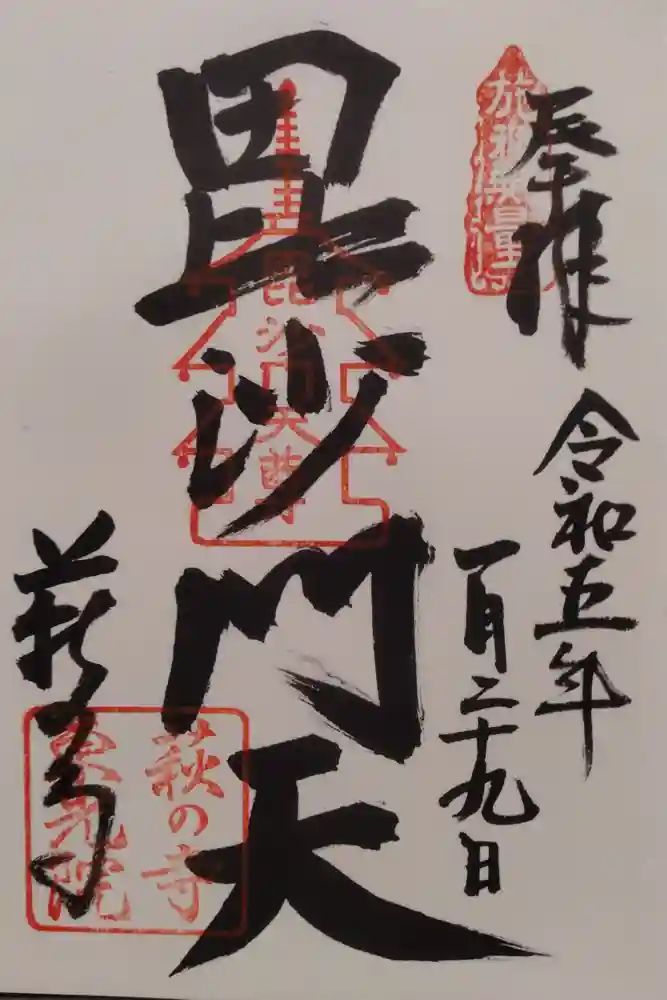 奉拝
令和五年
一月二十九日
毘沙門天
毘沙門天尊
萩の寺
萩の寺
東光院